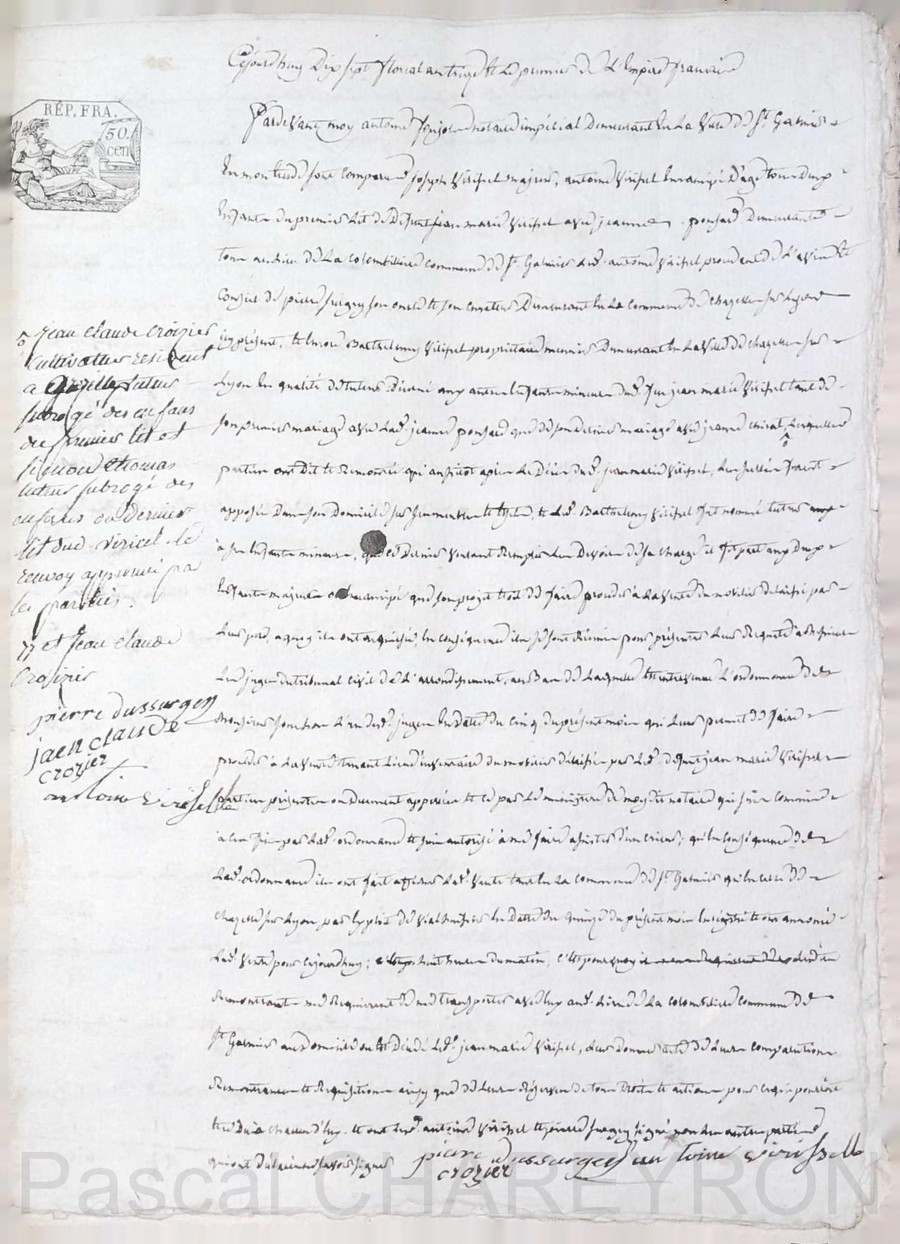 Cejourdhuy dix sept floreal an treize et le premier de L'Empire francais
RÉP. FRA.
50.
cen
Pardevant moy antoine notaire impérial demeurant en La Ville de St. Galmier
en mon etude sont comparu joseph Viricel majeur, antoine Viricel émancipé d'age tous deux
Enfants du premier Lit de Defunt jean marie Viricel avec jeanne ponsard demeurants
tous au lieu de La colombiliere commune de St. Galmier Led. antoine Viricel procedant de L'avis et
Conseil de pierre son oncle et son Curateur demeurant en La commune de chazelle sur Lyon
icy présent, et encore Barthelemy Viricel proprietaire demeurant en La Ville de chazelle sur
Lyon en qualité de tuteur des autres enfants mineurs dud. feu jean marie Viricel tant de
son premier mariage avec Lad. jeanne ponsard que de son dernier mariage avec jeanne Lesquelles
parties ont dit et Remontré qu'aussitot apres Le Décès dud. jean marie Viricel, Les scellés furent
apposés dans son Domicile sur et Led. Barthelemy Viricel fut nommé tuteur
à ses Enfants mineurs, que ce dernier voulant Remplir Les Devoirs de sa charge il fit part aux deux
Enfants majeur et émancipé que son projet etoit de faire proceder à La Vente du mobilier delaissé par
Leur pere, a quoy ils ont acquiescé, en conséquence ils se sont Réunis pour présenter Leur Requete
Les juges du tribunal civil de L'arrondissement, au Bas de Laquelle est intervenue L'ordonnance de
Monsieur L'un des juges en Date du Cinq du présent mois qui Leur permet de faire
proceder à La Vente tenant Lieu d'inventaire du mobilier délaissé par Led. defunt jean marie Viricel
parties présentes ou Duement appellées et ce par Le ministere de moy dit notaire qui suis commis
à ces fins par Lad. ordonnance et suis autorisé à me faire assister d'un crieur, qu'en conséquence de
Lad. ordonnance ils ont fait afficher Lad. Vente tant en La commune de St. Galmier qu'en celle de
chazelle sur Lyon par exploit de en Date du quinze du présent mois et ont annoncé
Lad. Vente pour cejourdhuy, huit heures du matin, c'est pourquoy
Remontrants me Requierent de me transporter avec eux aud. Lieu de La colombiliere commune de
St. Galmier au domicile où est Décédé Led. jean marie Viricel, Leur donner acte de Leurs comparutions
Remontrances et Requisitions ainsy que de Leurs Réserves de tous Droits et actions
et ont Led. antoine Viricel et pierre signé non Les autres parties
qui ont déclaré ne savoir signer
pierre dussurgey antoine virissell
crozier
jean claude croizier
cultivateur resident
a tuteur
subrogé des enfans
du premier lit et
thomas
tuteur subrogé des
enfans du dernier
lit dud. viricel. le
renvoy approuvé par
les parties.
et jean claude
Crozier
pierre dussurgey
jaen claude
crozier
antoine virisselle
Pascal CHAREYRON